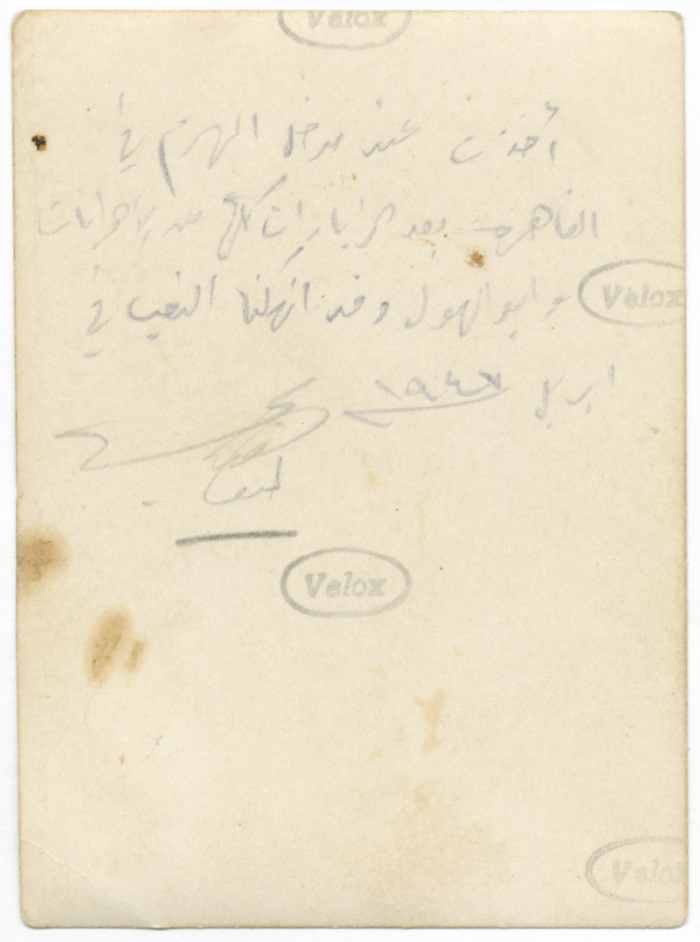 Velox
أخذت عند مدخل الهرم في
القاهرة بعد زيارات كل من الاهرامات
Velox
و ابو الهول و قد انهكنا التعب في
ابريل
Velox
Velox